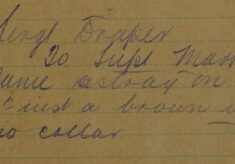 Sergt Draper
To Supt Mann
Came astray on
inst a brown
no collar